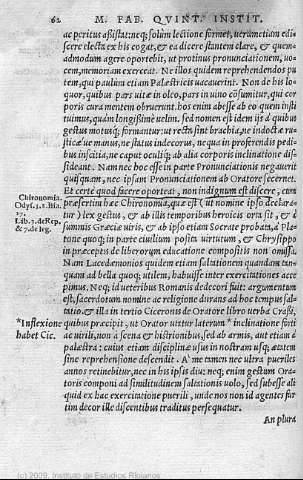 62 M. FAB. QVINT. INSTIT.
ac peritus assistat: neq; solùm lectione formet, uerumetiam edi-
scere electa ex his cogat, & ea dicere stantem clare, & quem-
admodum agere oportebit, ut protinus pronunciationem, uo-
cem, memoriam exerceat. Ne illos quidem reprehendendos pu-
tem, qui paulum etiam Palæstricis uacauerint. Non de his lo-
quor, quibus pars uitæ in oleo, pars in uino cōsumitur, qui cor
porū cura mentem obruerunt. hos enim abesse ab eo quem insti
tuimus, quàm longissimè uelim. sed nomen est idem ijs à quibus
gestus motusq; formantur: ut recti sint brachia, ne indoctæ ru-
sticæ ue manus, ne status indecorus, ne qua in proferendis pedi-
bus inscitia, ne caput oculiq; ab alia corporis inclinatione dis-
sideant. Nam nec hoc esse in parte Pronunciationis negauerit
quisquam, nec ipsam Pronunciationem ab Oratore secernet.
Et certè quod facere oporteat, non indignum est discere, cum
Chironomia. præsertim hæc Chironomia, quæ est (ut nomine ipso declara-
Odys. 1. & Ilia. tur) lex gestus, & ab illis temporibus heroicis orta sit, & à
17. summis Græciæ uiris, & ab ipso etiam Socrate probata, à Pla
Lib. 3. de Rep. tone quoq; in parte ciuilium posita uirtutum, & à Chrysippo
& 7. de leg. in præceptis de liberorum educatione compositis non omissa.
Nam Lacedæmonios quidem etiam saltationem quandam tan-
quam ad bella quoq; utilem, habuisse inter exercitationes acce
pimus. Neq; id ueteribus Romanis dedecori fuit: argumentum
est, sacerdotum nomine ac religione durans ad hoc tempus sal-
tatio, & illa in tertio Ciceronis de Oratore libro uerba Crassi,
*Inflexione quibus præcipit, ut Orator utatur laterum* inclinatione forti
habet Cic. ac uirili, non à scena & histrionibus, sed ab armis, aut etiam à
palæstra: cuius etiam disciplinæ usus in nostram usq; ætatem
sine reprehensione descendit. A' me tamen nec ultra pueriles
annos retinebitur, nec in his ipsis diu: neq; enim gestum Ora-
toris componi ad similitudinem saltationis uolo, sed subesse ali
quid ex hac exercitatione puerili, unde nos non id agentes fur
tim decor ille discentibus traditus persequatur.
An plura
(c) 2009, Instituto de Estudios Riojanos